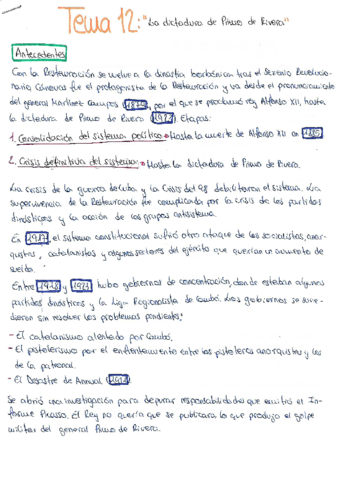 Tema 12: "La dictadura de Primo de Rivera"
Antecedentes
Con la Restauración se vuelve a la dinastía borbónica tras el Sexenio Revolucio-
nario. Cánovas fue el protagonista de la Restauración y va desde el pronunciamiento
del general Martínez Campos (1874), por el que se proclamó rey Alfonso XII, hasta
la dictadura de Primo de Rivera (1923). Etapas:
1. Consolidación del sistema político → Hasta la muerte de Alfonso XII en 1885.
2. Crisis definitiva del sistema → Hasta la dictadura de Primo de Rivera.
La crisis de la guerra de Cuba y la Crisis del 98 debilitaron el sistema. La
supervivencia de la Restauración fue complicada por la crisis de los partidos
dinásticos y la acción de los grupos antisistema.
En 1917, el sistema constitucional sufrió otro ataque de los socialistas, anar-
quistas, catalanistas y algunos sectores del ejército que querían un aumento de
sueldo.
Entre 1918 y 1923 hubo gobiernos de concentración, donde estaban algunos
partidos dinásticos y la Liga Regionalista de Cambó. Los gobiernos se suce-
dieron sin resolver los problemas pendientes:
- El catalanismo alentado por Cambó.
- El pistolerismo por el enfrentamiento entre los pistoleros anarquistas y los
de la patronal.
- El Desastre de Annual (1921).
Se abrió una investigación para depurar responsabilidades que emitió el In-
forme Picasso. El Rey no quería que se publicara, lo que produjo el golpe
militar del general Primo de Rivera.